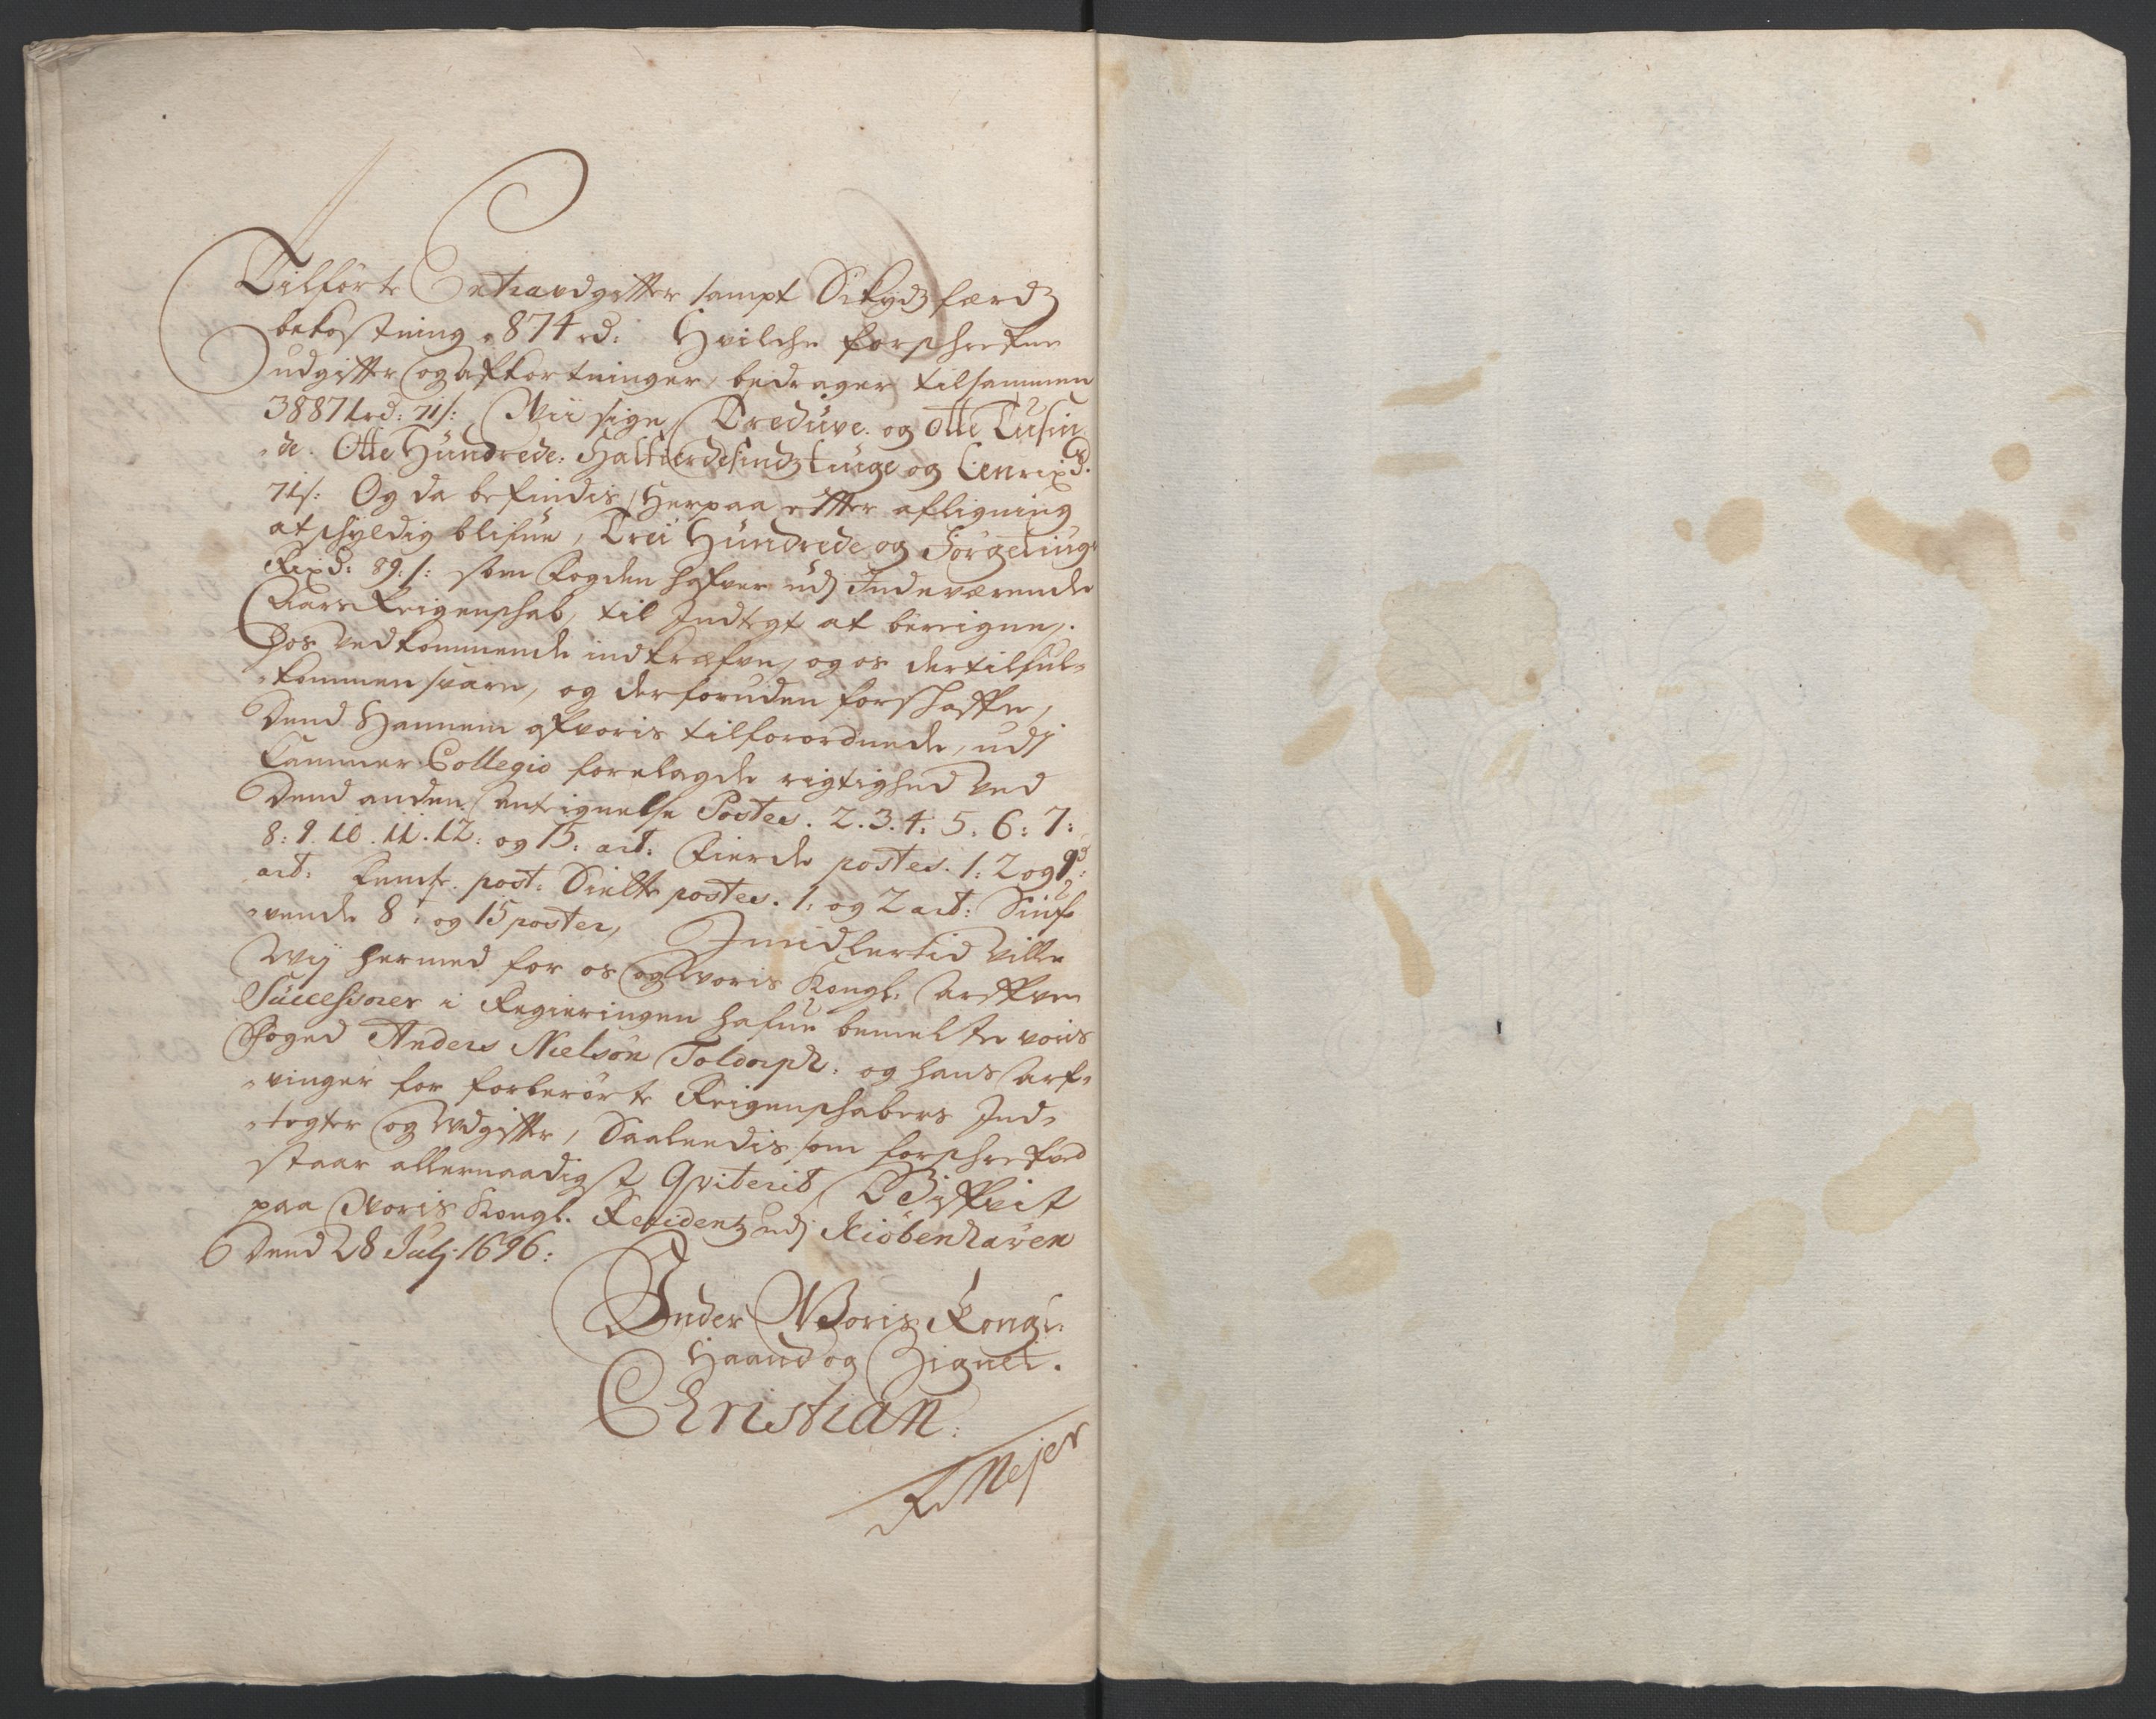 Tilførte Extraudgifter sampt Skydtzfærdtz
bekostning, 874 rd: Hvilche forschrefne
udgifter og afkortninger, bedrager tilsammen
38871 rd: 71 s: Wii sige Tredüve og otte Tüsin-
-de. Otte Hündrede. Halfierdesindztiuge og Een rixd.
71 s: Og da befindis, Herpaa efter afligning
at schyldig blifüe, Trei Hündrede og Förgetiuge
Rixd: 89: s: som Fogden hafver udj Indeværende
Aars Reigenschab, til Indtegt at berigne,
hos vedkommende indkræfve, og os dertil ful-
-kommen svare, og derforuden forschaffe,
Dend Hannem af voris tilforordnede, udj
Cammer Collegio forelagde rigtighed ved
Dend anden antignelse Postes. 2. 3. 4: 5. 6: 7:
8: 9. 10. 11. 12: og 15: art: Fierde postes. 1: 2 og 9de
art: Femte post: Siette postes. 1: og 2 art: Siuf-
-vende 8: og 15 poster, Imidlertid ville
Wij hermed for os og Woris Kongl: Arfve
Successorer i Regieringen hafüe bemelte voris
Foged Anders Nielsön Toldorph: og hans Arf-
-vinger for forberørte Reigenschabers Ind-
-tegter og Udgifter, Saaleedis som forschrefved
staar allernaadigst Qviterit, Gifvit
paa Woris Kongl. Residentz udj Kiöbenhaven
Dend 28 Julj 1696:
Under Woris Kongl:
Haand og Zignet.
Christian.
Meier